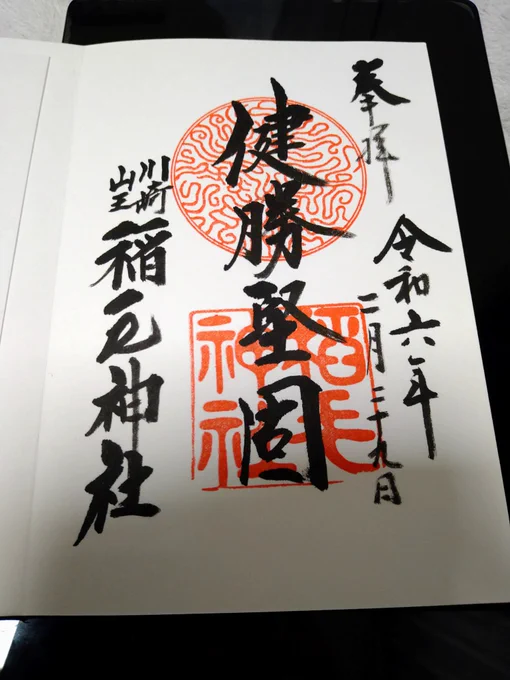 奉拝
令和六年
二月二十九日
健勝堅固
川崎
山王
稲毛神社
稲毛
神社